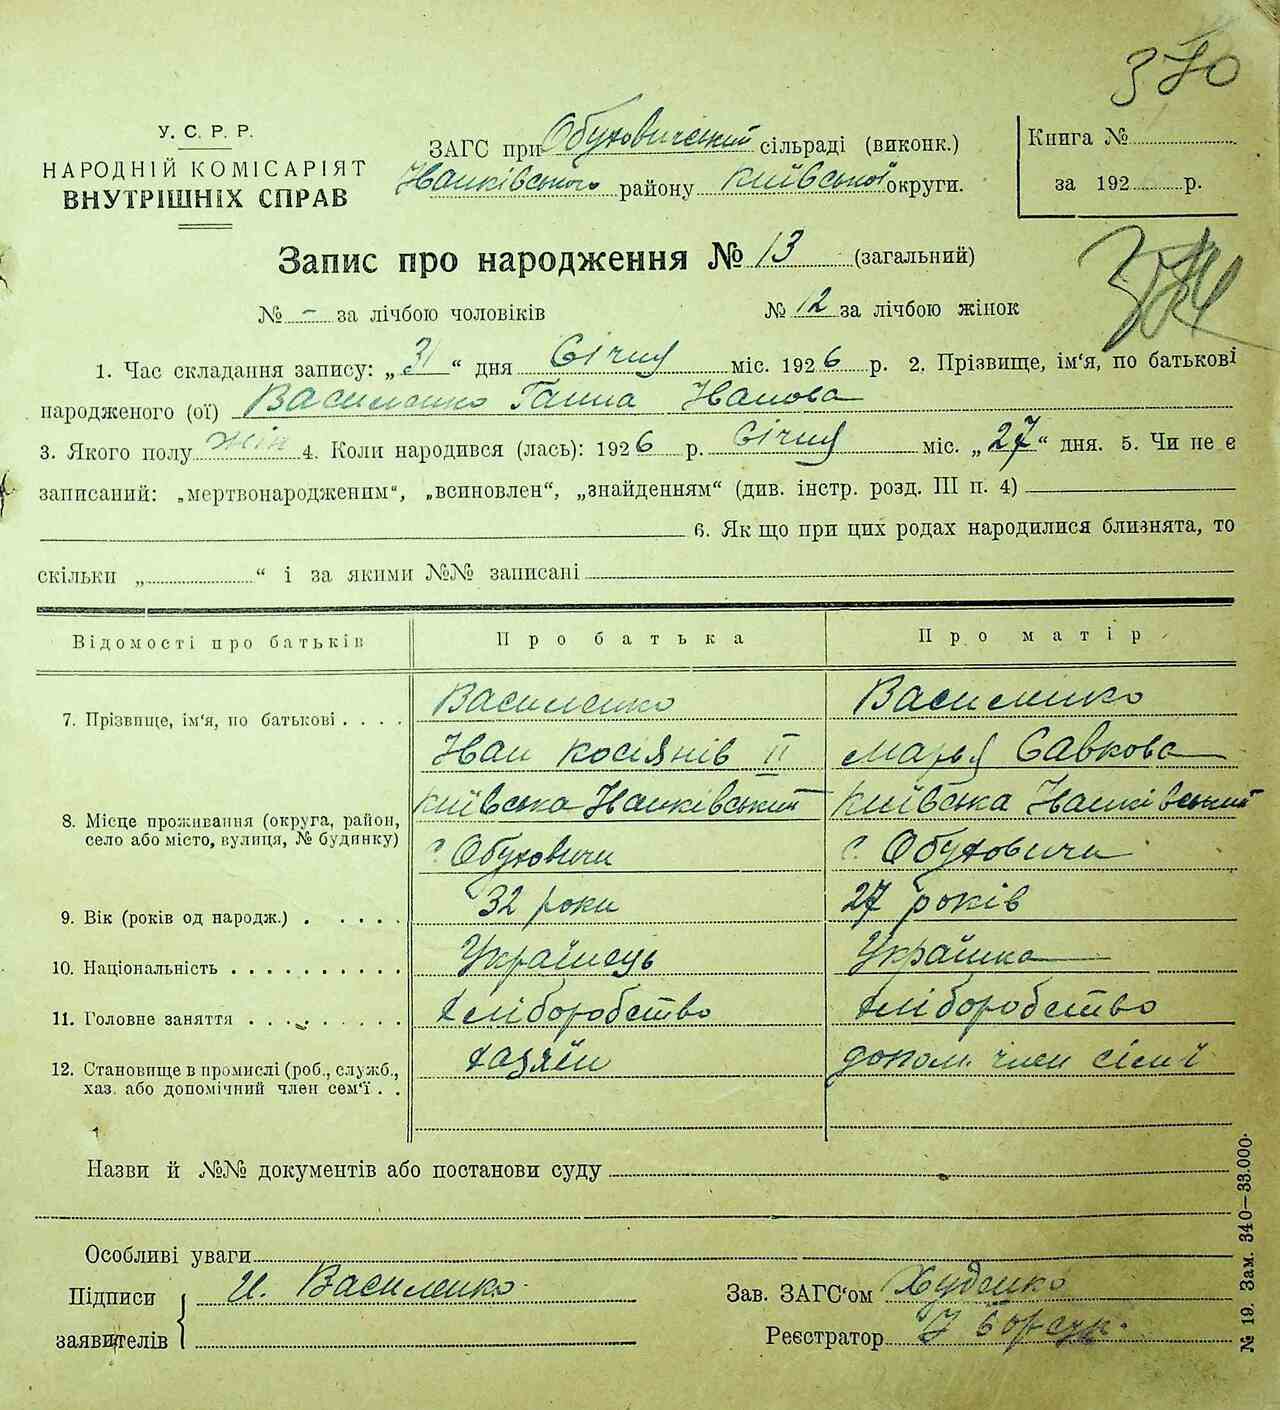 370
У. С. Р. Р.
НАРОДНІЙ КОМІСАРІЯТ
ВНУТРІШНІХ СПРАВ
ЗАГС при Обуховичський сільраді (виконк.)
Іванківського району Київської округи.
Книга №
за 192 р.
Запис про народження № 13 (загальний)
№ - за лічбою чоловіків № 12 за лічбою жінок
1. Час складання запису: „31“ дня Січня міс. 1926 р. 2. Прізвище, ім‘я, по батькові
народженого (ої) Василенко Ганна Іванова
3. Якого полу жін 4. Коли народився (лась): 1926 р. Січня міс. „27“ дня. 5. Чи не є
записаний: „мертвонародженим“, „всиновлен“, „знайденням“ (див. інстр. розд. III п. 4)
6. Як що при цих родах народилися близнята, то
скільки „ “ і за якими №№ записані
Відомості про батьків Про батька Про матір
7. Прізвище, ім‘я, по батькові . . . . Василенко Василенко
Іван Косіянів II Марья Савкова
8. Місце проживання (округа, район, Київська Іванківський Київська Іванківський
село або місто, вулиця, № будинку) с. Обуховичи с. Обуховичи
9. Вік (років од народж.) . . . . . 32 роки 27 років
10. Національність . . . . . . . . . . Українець Українка
11. Головне заняття . . . . . . . . . Хліборобство Хліборобство
12. Становище в промислі (роб., служб., Хазяїн допом. член сім'ї
хаз. або допомічний член сем‘ї . .
Назви й №№ документів або постанови суду
Особливі уваги
Підписи И. Василенко Зав. ЗАГС‘ом Худенко
заявителів Реєстратор
№ 19. Зам. 340—33.000.